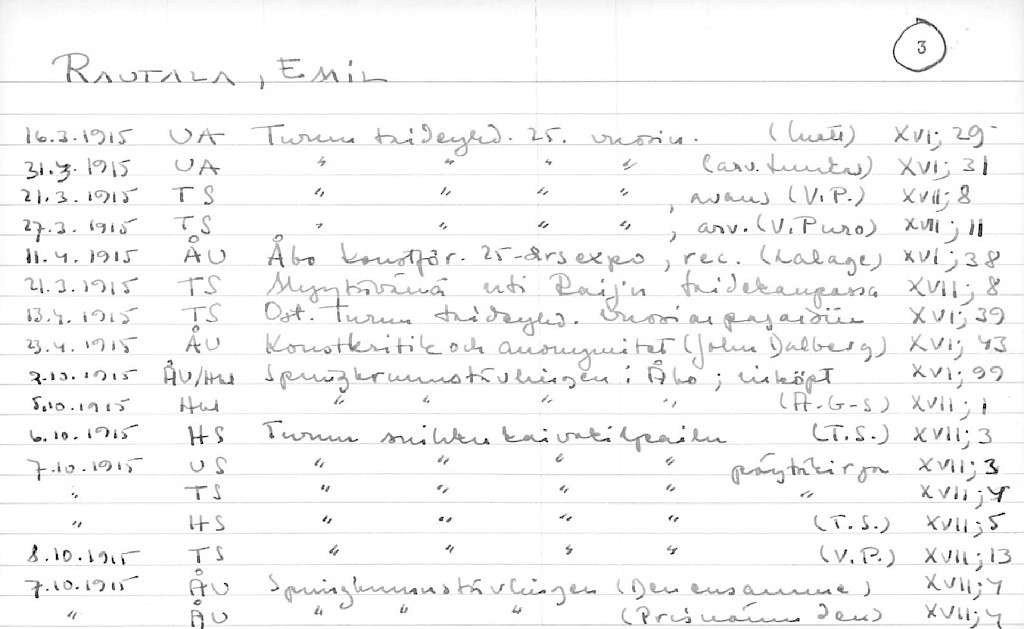 3
RAUTALA, EMIL
16.3.1915 UA Turun taideyhd. 25. vuosin. XVI; 29
31.3.1915 UA " " " " XVI; 31
21.3.1915 TS " " " " , avaus (V.P.) XVII; 8
27.3.1915 TS " " " " , arv. (V. Puro) XVII; 11
11.4.1915 ÅU Åbo konstför. 25-årsexpo, rec. (Lalage) XVI; 38
21.3.1915 TS Myytävänä uti Raij'n taidekaupassa XVII; 8
13.4.1915 TS Ost. Turun taideyhd. XVI; 39
23.4.1915 ÅU Konstkritik och anonymitet (John Dalberg) XVI; 43
2.10.1915 ÅU/Hbl Springbrunnstävlingen i Åbo; inköpt XVI; 99
5.10.1915 Hbl " " " " (A.G-S) XVII; 1
6.10.1915 HS Turun suihkukaivokilpailu (T.S.) XVII; 3
7.10.1915 US " " " " pöytäkirja XVII; 3
" TS " " " " " XVII; 4
" HS " " " " (T.S.) XVII; 5
8.10.1915 TS " " " " (V.P.) XVII; 13
7.10.1915 ÅU Springbrunnstävlingen (Den ensamme) XVII; 4
" ÅU " " " (Prisnämnden) XVII; 4